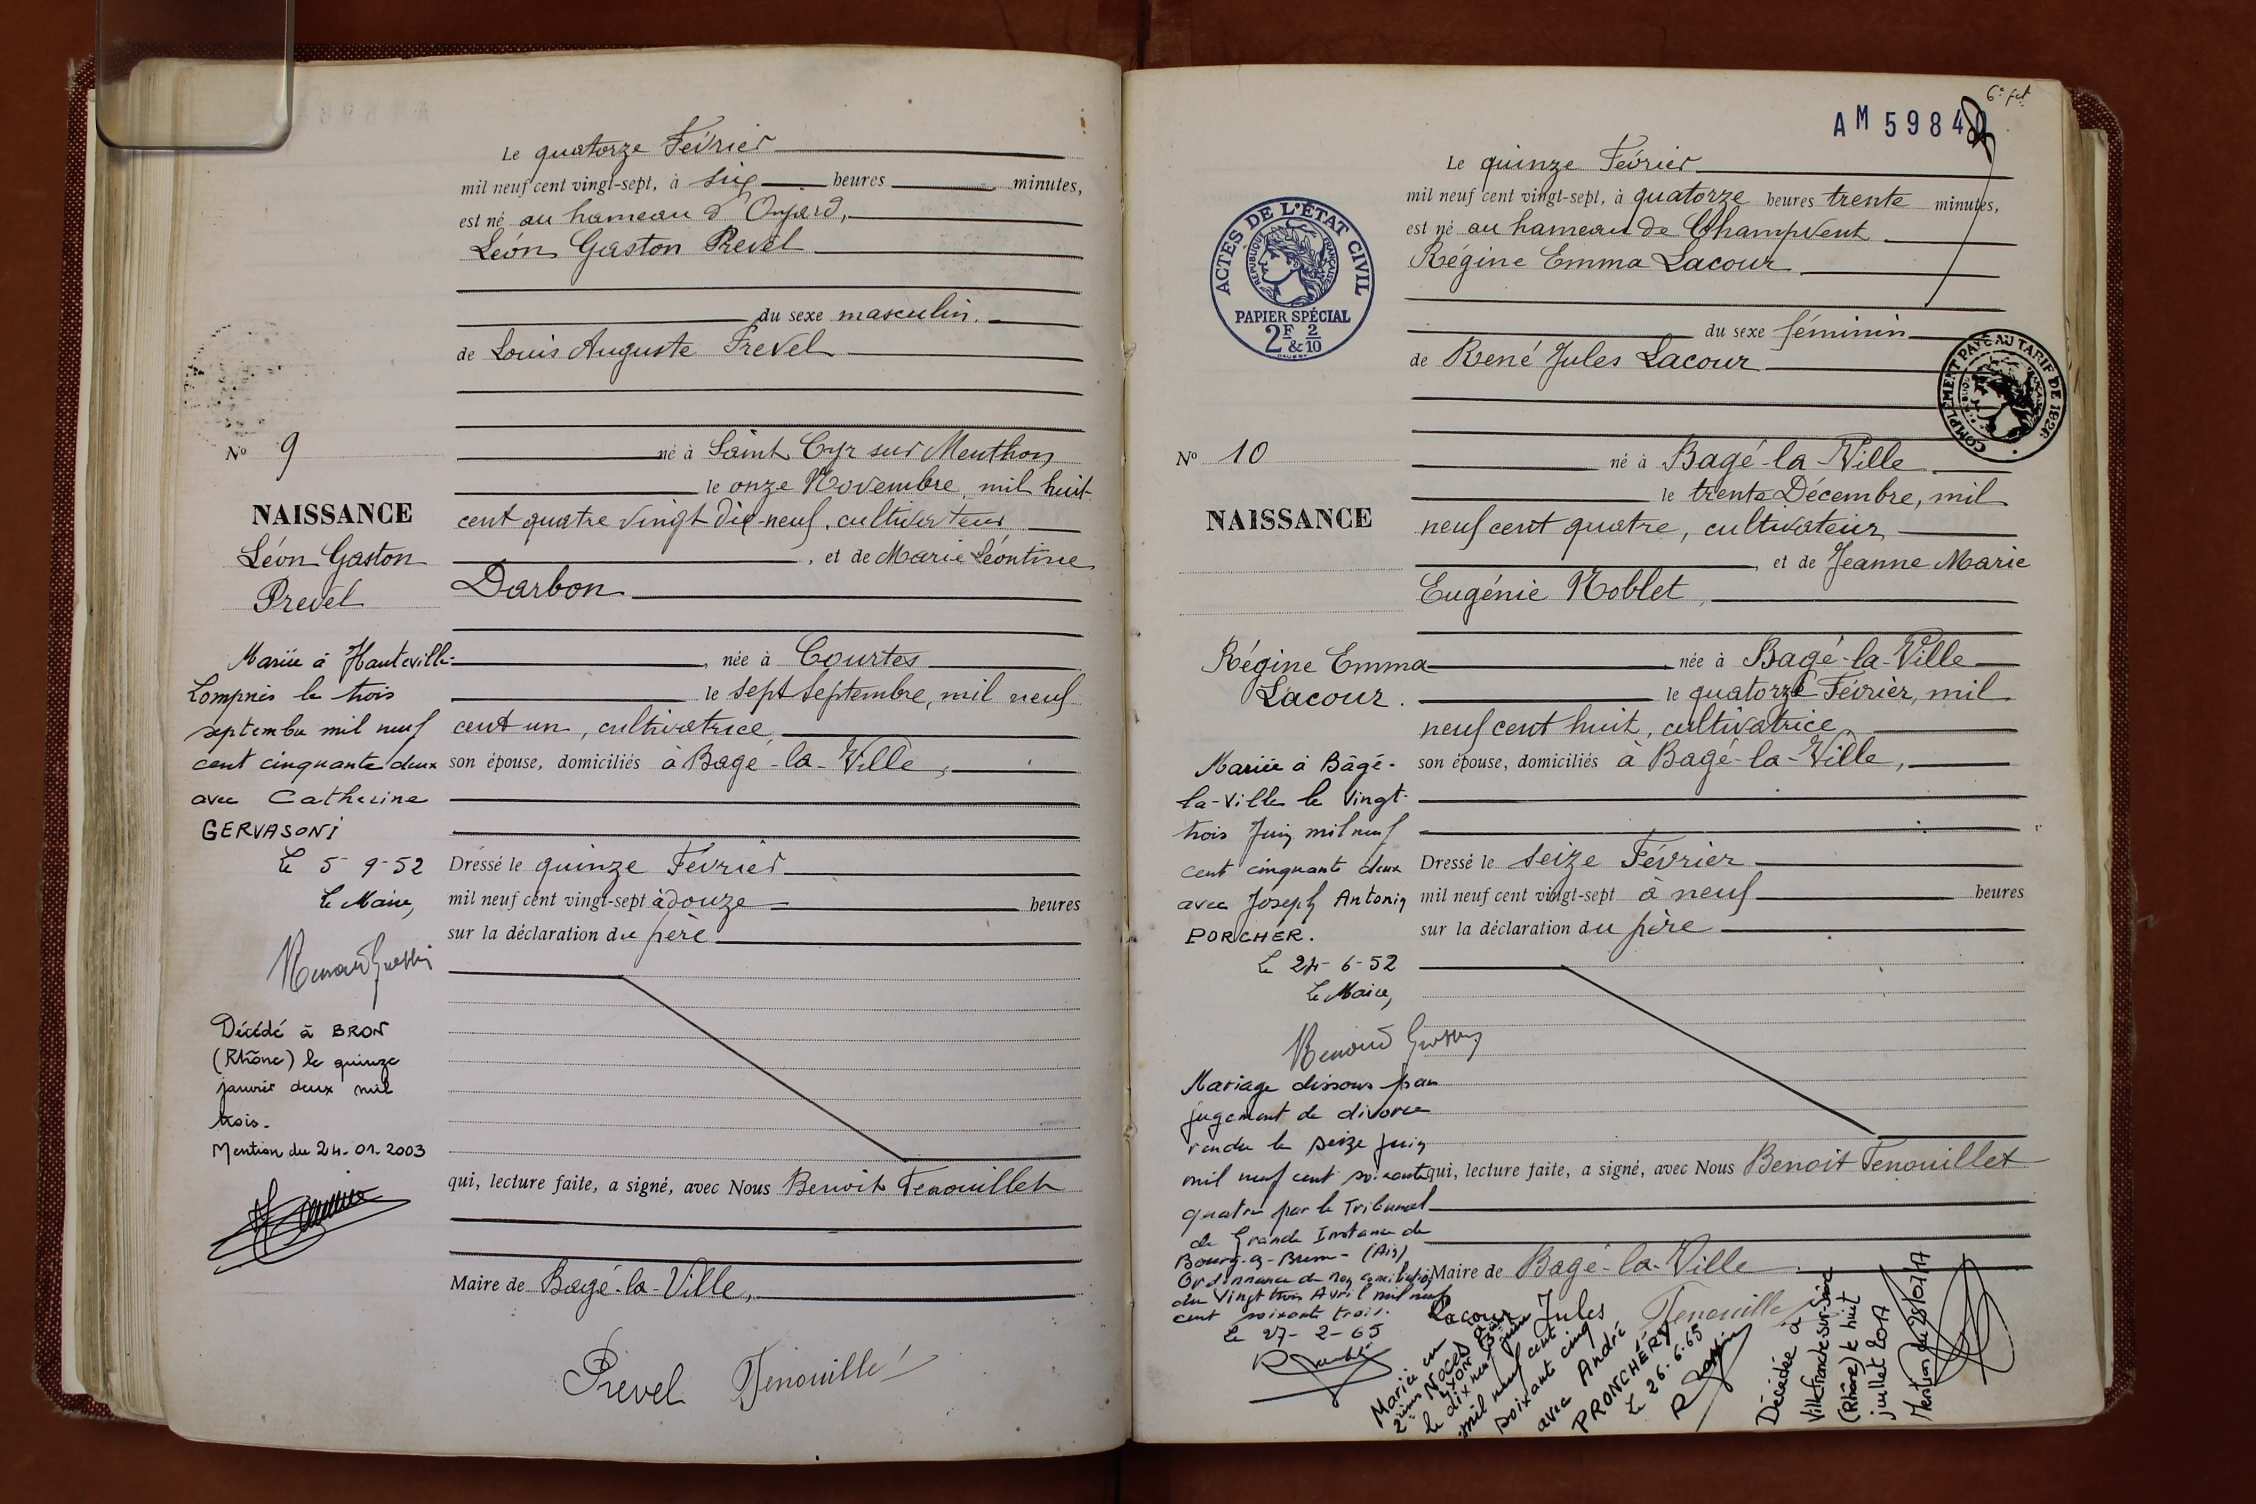 Le quatorze Février
mil neuf cent vingt-sept, à six heures minutes,
est né au hameau d'
Léon Gaston Prevel
du sexe masculin.
de Louis Auguste Prevel
né à Saint Cyr sur Menthon
le onze Novembre, mil huit
cent quatre vingt dix-neuf, cultivateur
, et de Marie Léontine
Darbon
, née à Courtes
le sept Septembre, mil neuf
cent un, cultivatrice
son épouse, domiciliés à Bagé-la-Ville,
Dressé le quinze Février
mil neuf cent vingt-sept à douze heures
sur la déclaration du père
qui, lecture faite, a signé, avec Nous Benoit Fenouillet
Maire de Bagé-la-Ville,
Prevel Fenouillet
No 9
NAISSANCE
Léon Gaston
Prevel
Mariée à Hauteville-
Lompnès le trois
septembre mil neuf
cent cinquante deux
avec Catherine
GERVASONI
Le 5-9-52
Le Maire,
Décédé à BRON
(Rhône) le quinze
janvier deux mil
trois.
Mention du 24-01-2003
6e fet
AM 59840
Le quinze Février
mil neuf cent vingt-sept, à quatorze heures trente minutes,
est né au hameau de Champvent
Régine Emma Lacour
du sexe féminin
de René Jules Lacour
né à Bagé-la-Ville
le trente Décembre, mil
neuf cent quatre, cultivateur
, et de Jeanne Marie
Eugénie Noblet,
, née à Bagé-la-Ville
le quatorze Février, mil
neuf cent huit, cultivatrice
son épouse, domiciliés à Bagé-la-Ville,
Dressé le seize Février
mil neuf cent vingt-sept à neuf heures
sur la déclaration du père
qui, lecture faite, a signé, avec Nous Benoit Fenouillet
Maire de Bagé-la-Ville
Lacour Jules Fenouillet
ACTES DE L'ÉTAT CIVIL
RÉPUBLIQUE FRANÇAISE
PAPIER SPÉCIAL
2F & 2/10
COMPLÉMENT PAYÉ AU TARIF DE 1926
No 10
NAISSANCE
Régine Emma
Lacour.
Mariée à Bâgé-
la-Ville le vingt-
trois Juin mil neuf
cent cinquante deux
avec Joseph Antonin
PORCHER.
Le 24-6-52
Le Maire,
Mariage dissous par
jugement de divorce
rendu le seize juin
mil neuf cent soixante
quatre par le Tribunal
de Grande Instance de
Bourg-en-Bresse (Ain)
Ordonnance de non conciliation
du vingt trois Avril mil neuf
cent soixante trois.
Le 27-2-65
Mariée en
2ièmes Noces à
le dix neuf juin
mil neuf cent
soixante cinq
avec André
PRONCHÉRY
Le 26.6.65
Décédée à
Villefranche-sur-Saône
(Rhône) le huit
juillet 2017
Mention du